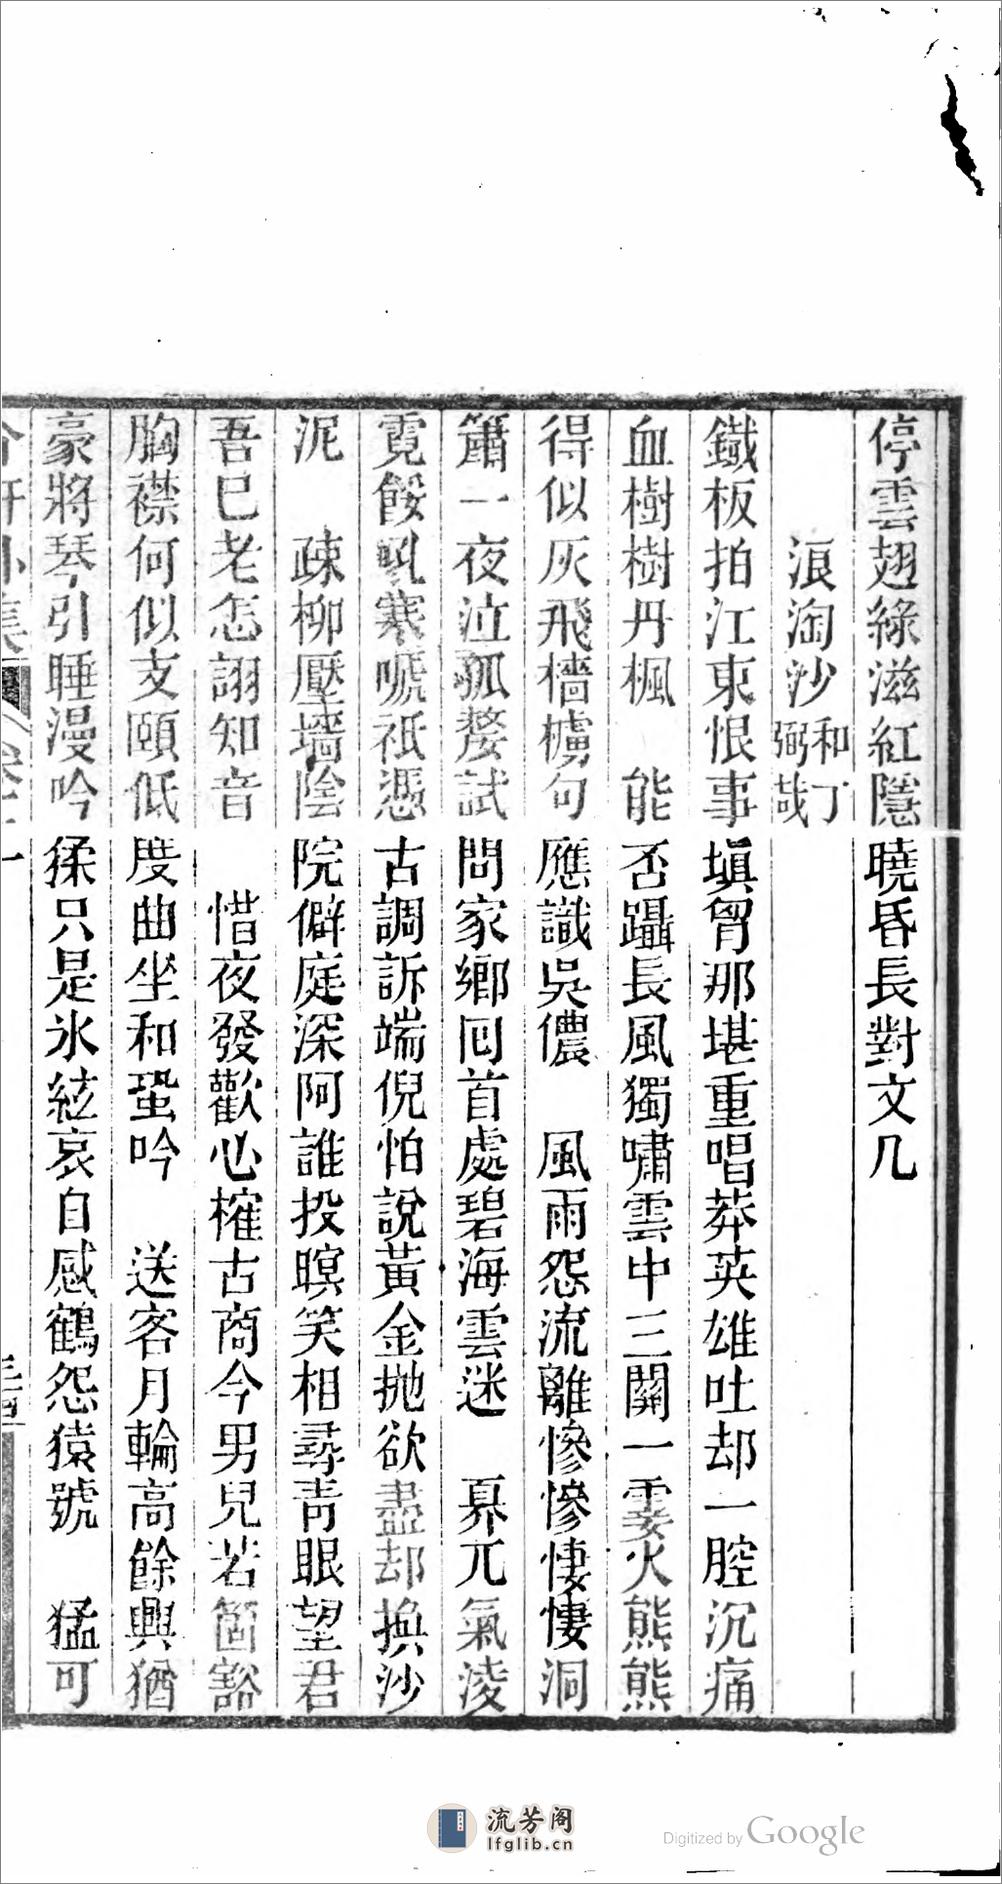 停雲翅綠滋紅隱曉昏長對文几
浪淘沙和丁
弼哉
鐵板拍江東恨事塡胷那堪重唱莽英雄吐却一腔沉痛
血樹樹丹楓　能否躡長風獨嘯雲中三關一霎火熊熊
得似灰飛檣櫓句應識吳儂　風雨怨流離慘慘悽悽洞
簫一夜泣孤嫠試問家鄉囘首處碧海雲迷　奡兀氣淩
霓餒吼寒嘶祇憑古調訴端倪怕說黃金拋欲盡却換沙
泥　疎柳壓墻陰院僻庭深阿誰投暝笑相尋靑眼望君
吾巳老怎詡知音　惜夜發歡心榷古商今男兒若箇豁
胸襟何似支頤低度曲坐和蛩吟　送客月輪高餘興猶
豪將琴引睡漫吟猱只是氷絃哀自感鶴怨猿號　猛可
三四
流芳阁
lfglib.cn
Digitized by Google